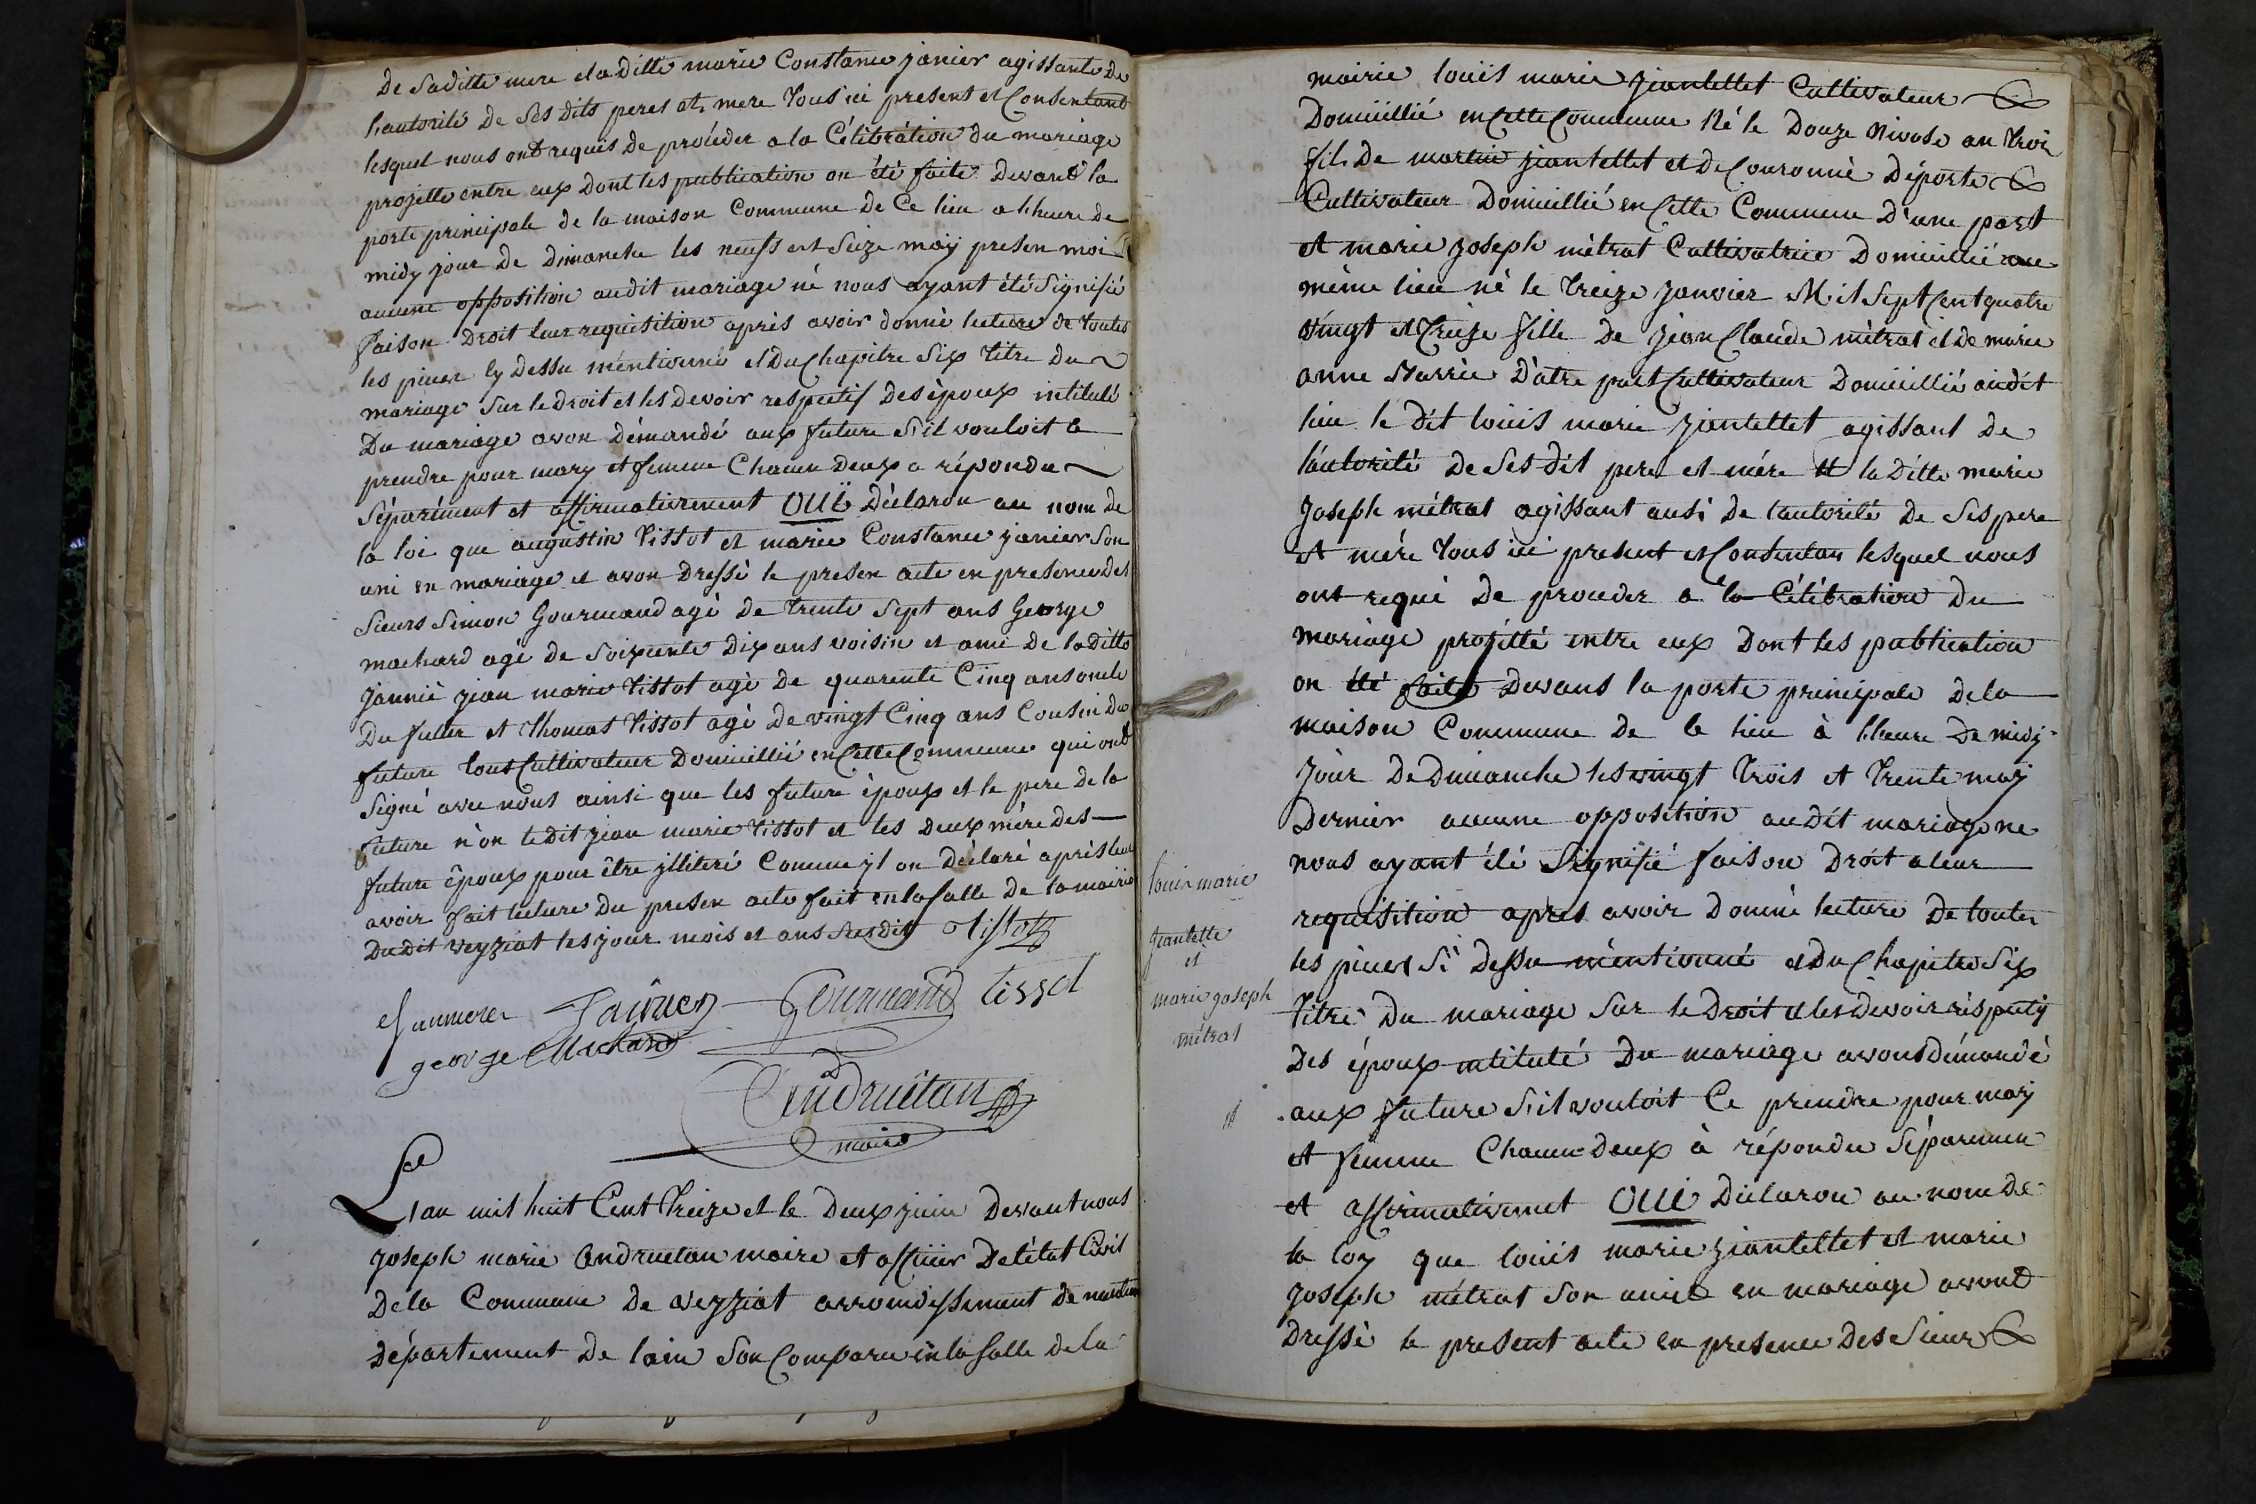 de Saditte mere et la ditte marie Constance janier agissante de
lautorité de Ses dits peres et mere tous ici present et Consentant
lesquel nous ont requis de proceder a la Célébration du mariage
projetté entre eux dont les publication on été faite devant la
porte principale de la maison Commune de Ce lieu a lheure de
midy jour de dimanche les neuf et Seize may presen moi
aucune opposition audit mariage né nous ayant été Signifié
faison droit leur requisition après avoir donné lecture de toutes
les pieces cy dessu mentionné et du Chapitre Six titre du
mariage Sur le droit et les devoir respectif des époux intitulé
du mariage avon démandé aux future S'il vouloit ce
prendre pour mary et femme Chacun deux a répondu
Séparément et affirmativement OUI déclaron au nom de
la loi que augustin tissot et marie Constance janier Son
uni en mariage et avon dressé le presen acte en presence des
Sieurs Simon Gourmand agé de trente Sept ans George
machard agé de Soixante dix ans voisin et ami de la ditte
jannié jean marie tissot agé de quarente Cinq ans oncle
du futur et thomas tissot agé de vingt Cinq ans Cousin du
future tous Cultivateur domicillié en Cette Commune qui ont
Signé avec nous ainsi que les future époux et le pere de la
future n'on le dit jean marie tissot et les deux mére des
future époux pour être illiteré Comme jl on déclaré après leur
avoir fait lecture du presen acte fait en la Salle de la mairie
du dit veyziat les jour mois et ans Susdit tissot
Gourmand tissot
george Machard
andruetan
maire
L'an mil huit Cent treize et le deux juin devant nous
joseph marie andruetan maire et officier de létat Civil
de la Commune de veyziat arrondissement de nantua
département de lain Son Comparu en la Salle de la
mairie louis marie jeantettet Cultivateur
domicillié en Cette Commune Né le douze Nivose an trois
fils de martin jeantettet et de Couronné déporte
Cultivateur domicillié en Cette Commune d'une part
et marie joseph métrat Cultivatrice domicillié au
même lieu né le treize janvier Mil Sept Cent quatre
vingt et treize fille de jean Claude métrat et de marie
anne d'atre part Cultivateur domicillié audit
lieu le dit louis marie jeantettet agissant de
láutorité de Ses dit pere et mére et la ditte marie
joseph métrat agissant ausi de lautorité de Ses pere
et mére tous ici present et Consentan lesquel nous
ont requi de proceder a la Célébration du
mariage projetté entre eux dont les publication
on été faite devans la porte principale de la
maison Commune de Ce lieu à lheure de midy
jour de dimanche les vingt trois et trente may
dernier aucune opposition audit mariage ne
nous ayant été Signifié faison droit a leur
requisition apres avoir donné lecture de toutes
les pieces Si dessu mentionné et du Chapitre Six
titre du mariage Sur le droit et les devoir réspectif
des époux intitulé du mariage avons démandé
aux future S'il vouloit Ce prendre pour mary
et femme Chacun deux à répondu Séparemen
et affirmativemet OUI déclaron au nom de
la loy que louis marie jeantettet et marie
joseph métrat Son unie en mariage avons
dréssé le present acte en presence des Sieur
louis marie
jeantette
et
marie joseph
métrat